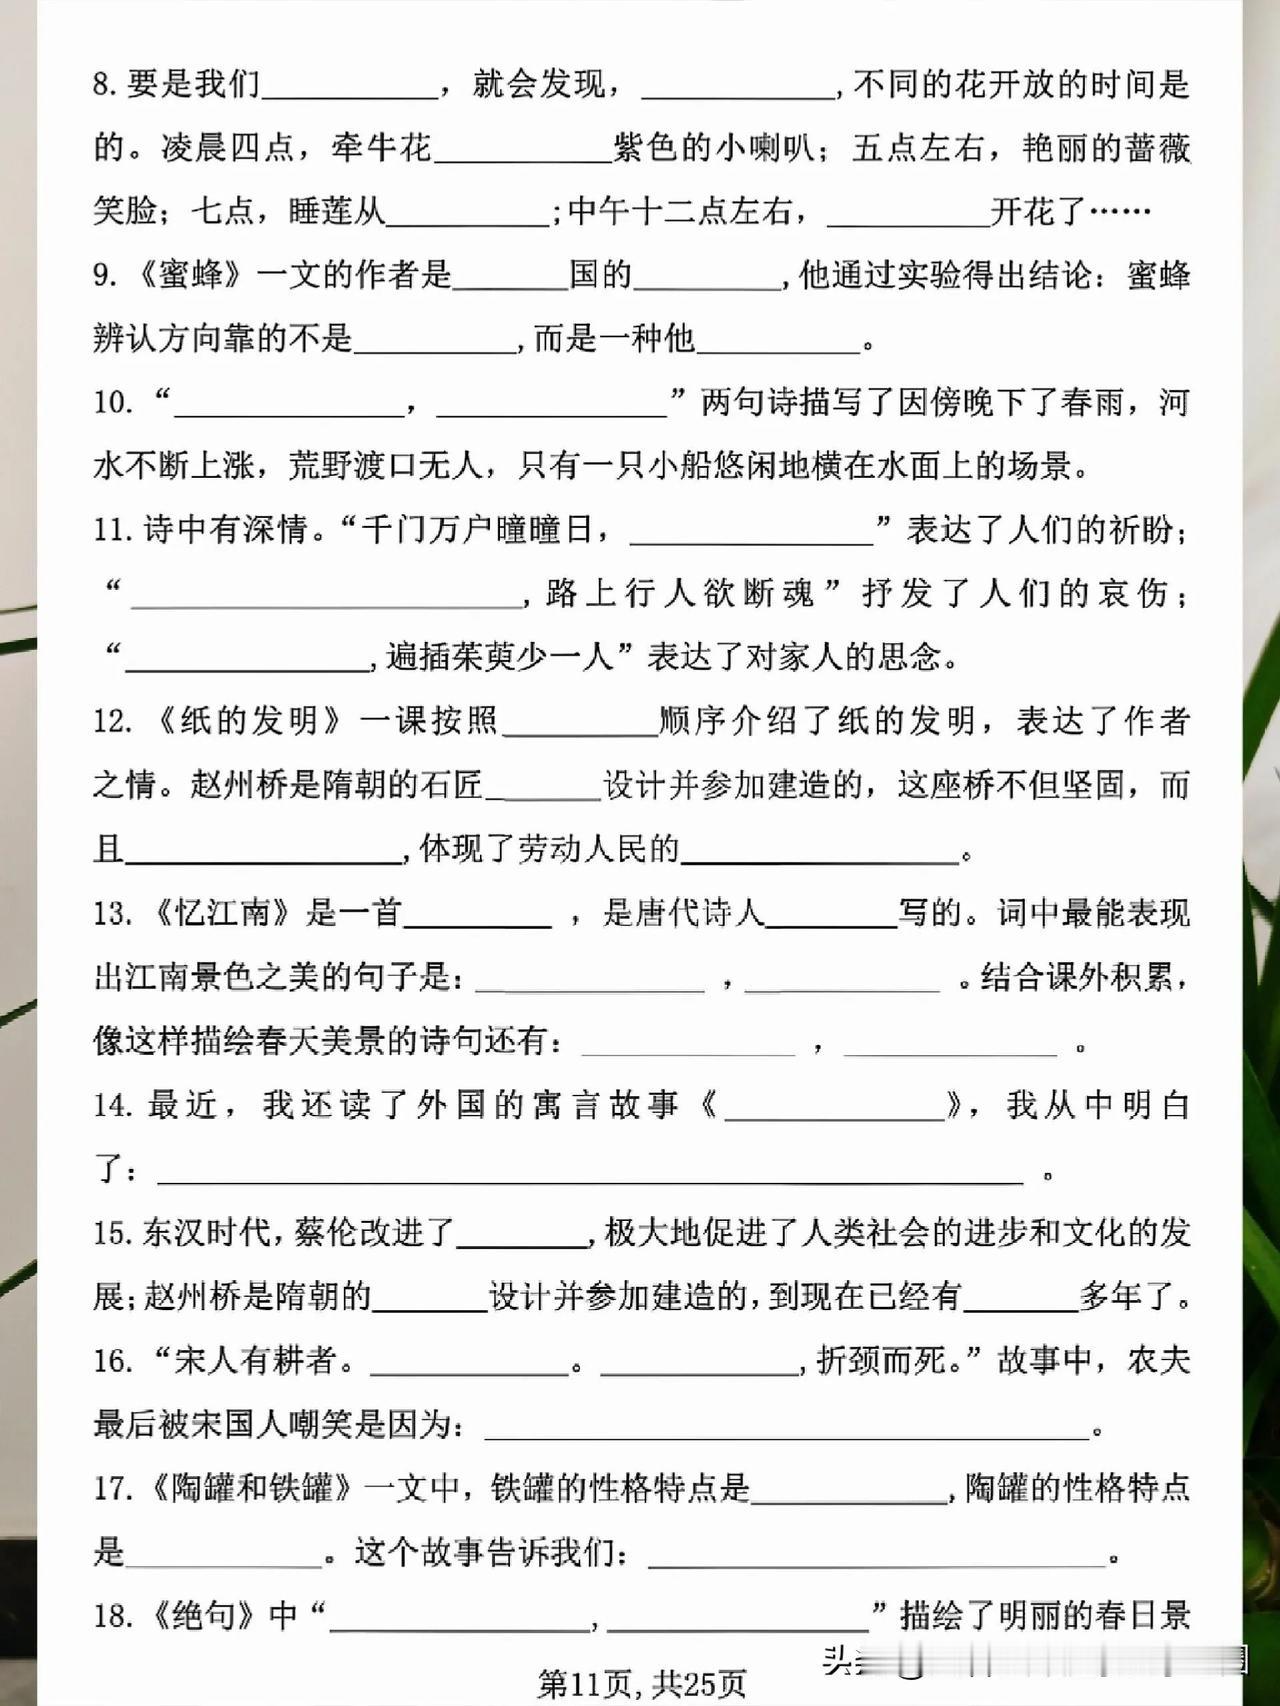 8.要是我们__________，就会发现，___________,不同的花开放的时间是
的。凌晨四点，牵牛花__________紫色的小喇叭；五点左右，艳丽的蔷薇
笑脸；七点，睡莲从__________;中午十二点左右，__________开花了……
9.《蜜蜂》一文的作者是_______国的_________,他通过实验得出结论：蜜蜂
辨认方向靠的不是__________,而是一种他__________。
10.“______________，______________”两句诗描写了因傍晚下了春雨，河
水不断上涨，荒野渡口无人，只有一只小船悠闲地横在水面上的场景。
11.诗中有深情。“千门万户曈曈日，_______________”表达了人们的祈盼；
“________________________,路上行人欲断魂”抒发了人们的哀伤；
“_______________,遍插茱萸少一人”表达了对家人的思念。
12.《纸的发明》一课按照_________顺序介绍了纸的发明，表达了作者
之情。赵州桥是隋朝的石匠_______设计并参加建造的，这座桥不但坚固，而
且_________________,体现了劳动人民的_________________。
13.《忆江南》是一首_________，是唐代诗人________写的。词中最能表现
出江南景色之美的句子是：______________，____________。结合课外积累，
像这样描绘春天美景的诗句还有：_____________，_____________。
14.最近，我还读了外国的寓言故事《_____________》，我从中明白
了：_____________________________________________________。
15.东汉时代，蔡伦改进了________,极大地促进了人类社会的进步和文化的发
展；赵州桥是隋朝的_______设计并参加建造的，到现在已经有_______多年了。
16.“宋人有耕者。____________。____________,折颈而死。”故事中，农夫
最后被宋国人嘲笑是因为：_____________________________________。
17.《陶罐和铁罐》一文中，铁罐的性格特点是____________,陶罐的性格特点
是____________。这个故事告诉我们：____________________________。
18.《绝句》中“________________,________________”描绘了明丽的春日景
第11页，共25页